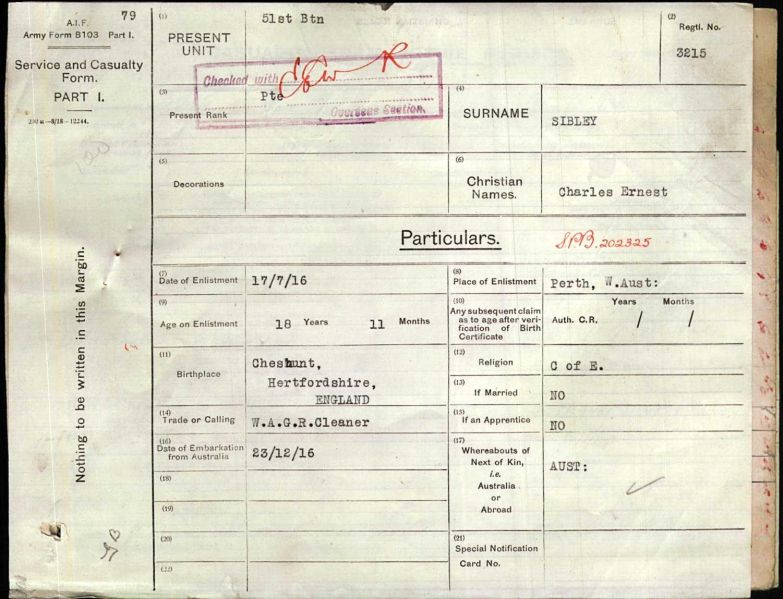 79
A.I.F.
Army Form B103 Part I.
Service and Casualty
Form.
PART I.
Nothing to be written in this Margin.
(1)
PRESENT
UNIT
51st Btn
(2)
Regtl. No.
3215
Checked with
Overseas Section.
(3)
Present Rank
Pte
(4)
SURNAME
SIBLEY
(5)
Decorations
(6)
Christian
Names.
Charles Ernest
Particulars.
202325
(7)
Date of Enlistment
17/7/16
(8)
Place of Enlistment
Perth, W.Aust:
(9)
Age on Enlistment
18 Years 11 Months
(10)
Any subsequent claim
as to age after veri-
fication of Birth
Certificate
Auth. C.R.
Years Months
/ /
(11)
Birthplace
Cheshunt,
Hertfordshire,
ENGLAND
(12)
Religion
C of E.
(13)
If Married
NO
(14)
Trade or Calling
W.A.G.R.Cleaner
(15)
If an Apprentice
NO
(16)
Date of Embarkation
from Australia
23/12/16
(17)
Whereabouts of
Next of Kin,
i.e.
Australia
or
Abroad
AUST:
(18)
(19)
(20)
(21)
Special Notification
Card No.
(22)